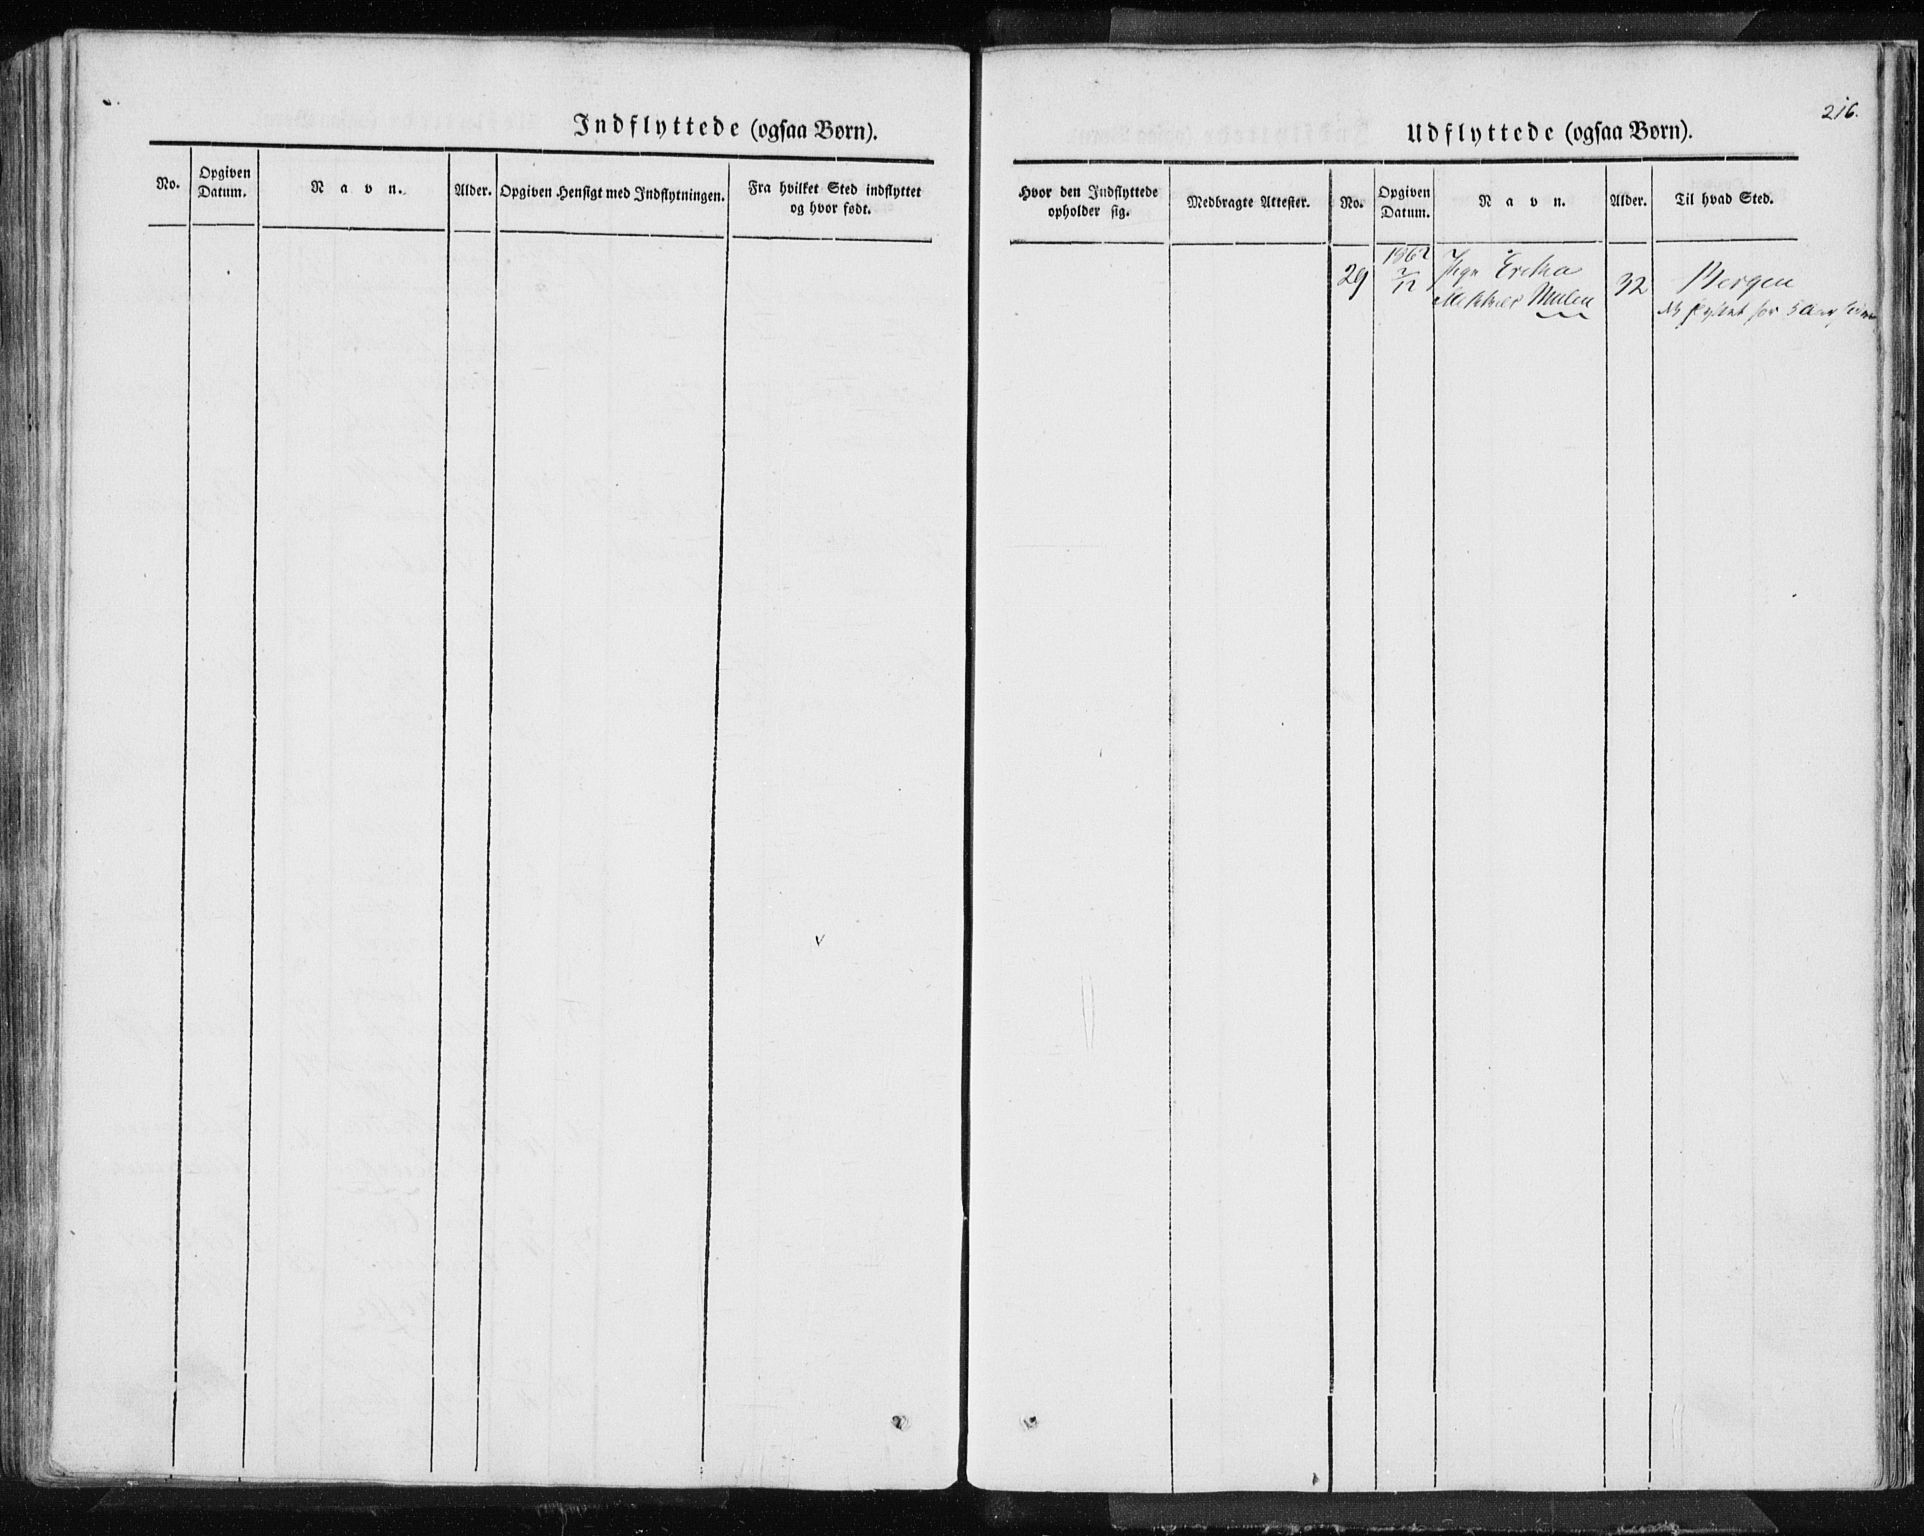 Indflyttede (ogsaa Børn).
No.
Opgiven Datum.
Navn.
Alder.
Opgiven Hensigt med Indflytningen.
Fra hvilket Sted indflyttet og hvor født.
216.
Udflyttede (ogsaa Børn).
Hvor den Indflyttede opholder sig.
Medbragte Attester.
No.
Opgiven Datum.
Navn.
Alder.
Til hvad Sted.
29
1862
Pige Eretha
Mulen
32
Bergen
flyttet for 5 Aar siden